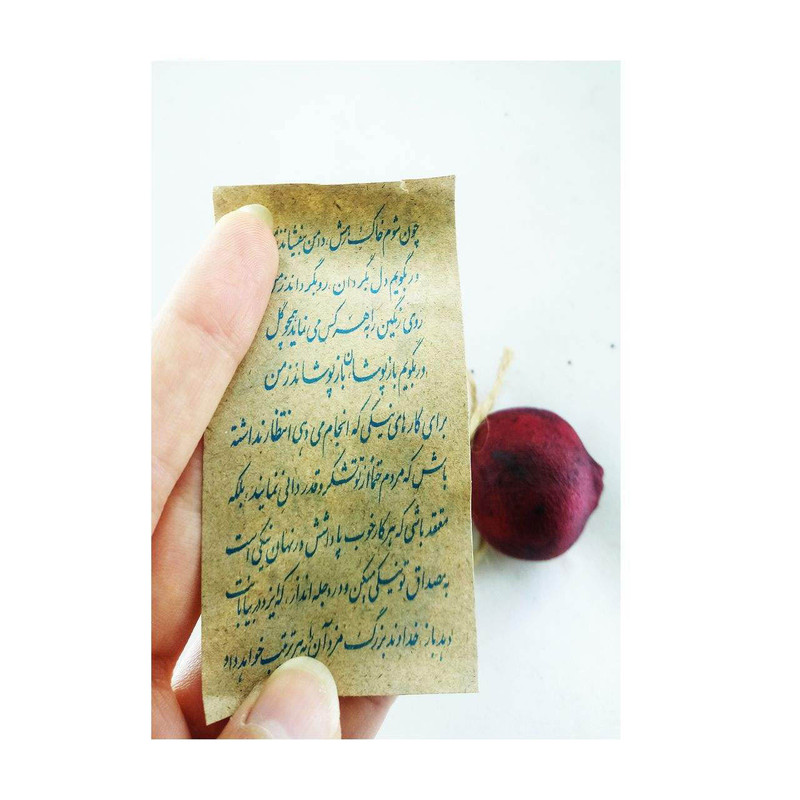 چون شوم خاک رهش، دامن بیفشاند ز
ور بگویم دل بگردان، رو بگرداند ز من
روی رنگین را به هر کس می نماید همچو گل
ور بگویم باز پوشان باز پوشاند ز من
برای کارهای نیکی که انجام می دهی انتظار نداشته
باش که مردم حتما از تو تشکر و قدردانی نمایند، بلکه
معتقد باشی که هر کار خوب پاداشش در نهان نیکی است
به مصداق تو نیکی میکن و در دجله انداز، که ایزد در بیابانت
دهد باز خداوند بزرگ مزد آن را به مرتب خواهد داد